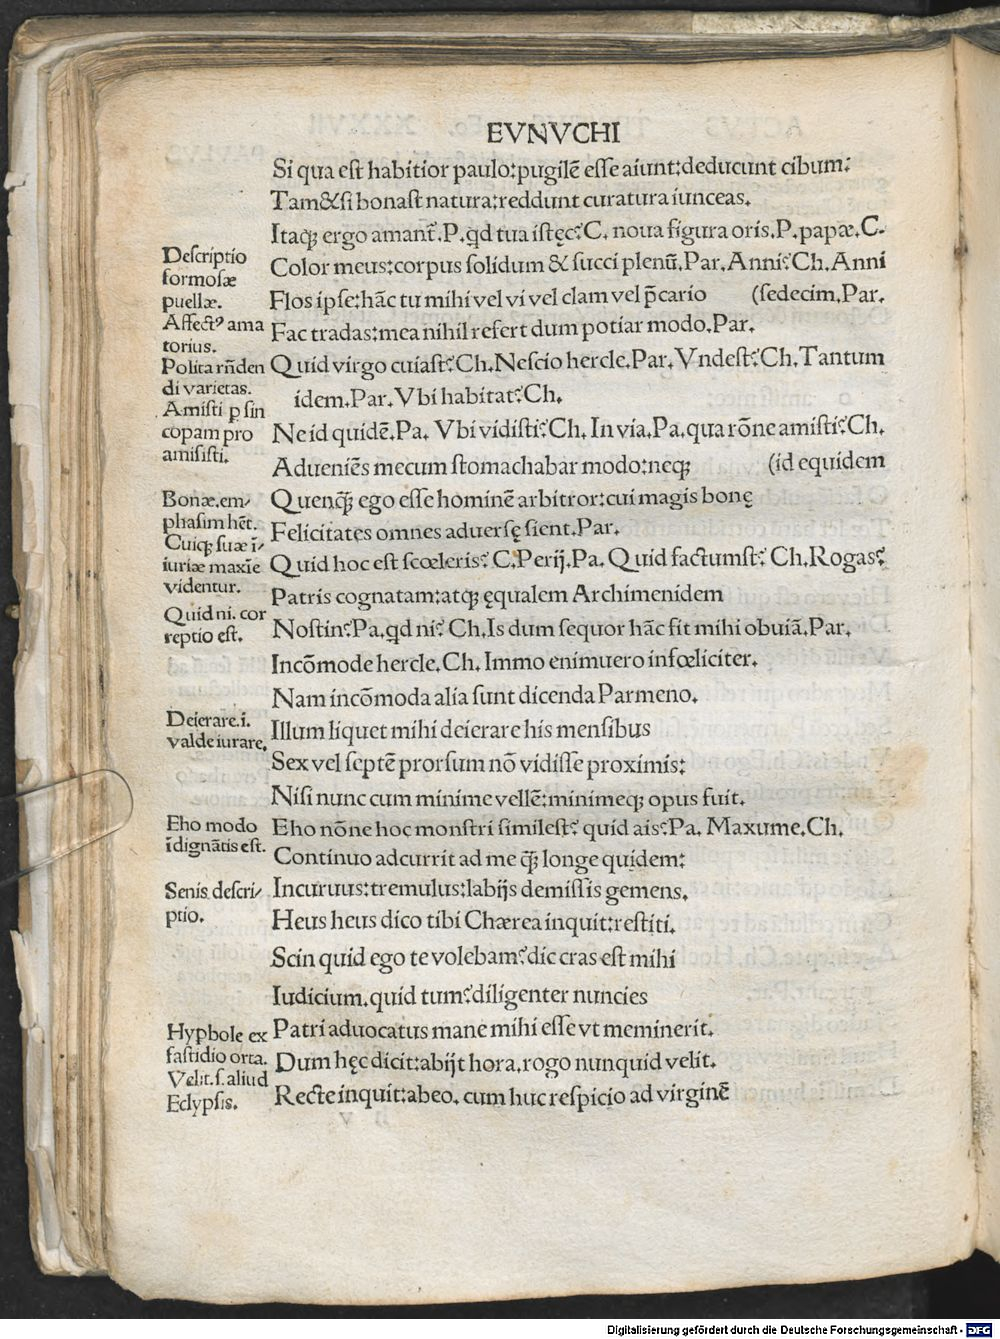 EVNVCHI
Si qua est habitior paulo: pugilē esse aiunt: deducunt cibum:
Tam&si bonast natura: reddunt curatura iunceas.
Itaq; ergo amant̃. P. qd tua istęc? C. noua figura oris. P. papæ. C.
Color meus: corpus solidum & succi plenū. Par. Anni? Ch. Anni
Flos ipse: hāc tu mihi vel vi vel clam vel p̄cario (sedecim. Par.
Fac tradas: mea nihil refert dum potiar modo. Par.
Quid virgo cuiast? Ch. Nescio hercle. Par. Vndest? Ch. Tantum
idem. Par. Vbi habitat? Ch.
Ne id quidē. Pa. Vbi vidisti? Ch. In via. Pa. qua rōne amisti? Ch.
Adueniēs mecum stomachabar modo: neq; (id equidem
Quenq̄; ego esse hominē arbitror: cui magis bonę
Felicitates omnes aduersę sient. Par.
Quid hoc est scœleris? C. Perij. Pa. Quid factumst? Ch. Rogas?
Patris cognatam: atq; ęqualem Archimenidem
Nostin? Pa. qd ni? Ch. Is dum sequor hāc fit mihi obuiā. Par.
Incōmode hercle. Ch. Immo enimuero infœliciter.
Nam incōmoda alia sunt dicenda Parmeno.
Illum liquet mihi deierare his mensibus
Sex vel septē prorsum nō vidisse proximis:
Nisi nunc cum minime vellē: minimeq; opus fuit.
Eho nōne hoc monstri similest? quid ais? Pa. Maxume. Ch.
Continuo adcurrit ad me q̄; longe quidem:
Incuruus: tremulus: labijs demissis gemens.
Heus heus dico tibi Chærea inquit: restiti.
Scin quid ego te volebam? dic cras est mihi
Iudicium. quid tum? diligenter nuncies
Patri aduocatus mane mihi esse vt meminerit.
Dum hęc dicit: abijt hora. rogo nunquid velit.
Recte inquit: abeo. cum huc respicio ad virginē
Descriptio
formosæ
puellæ.
Affectꝰ ama
torius.
Polita rn̄den
di varietas.
Amisti p sin
copam pro
amisisti.
Bonæ. em/
phasim hēt.
Cuiq; suæ ī/
iuriæ maxīe
videntur.
Quid ni. cor
reptio est.
Deierare. i.
valde iurare.
Eho modo
īdignātis est.
Senis descri/
ptio.
Hypbole ex
fastidio orta.
Velit. s. aliud
Eclypsis.
Digitalisierung gefördert durch die Deutsche Forschungsgemeinschaft - DFG